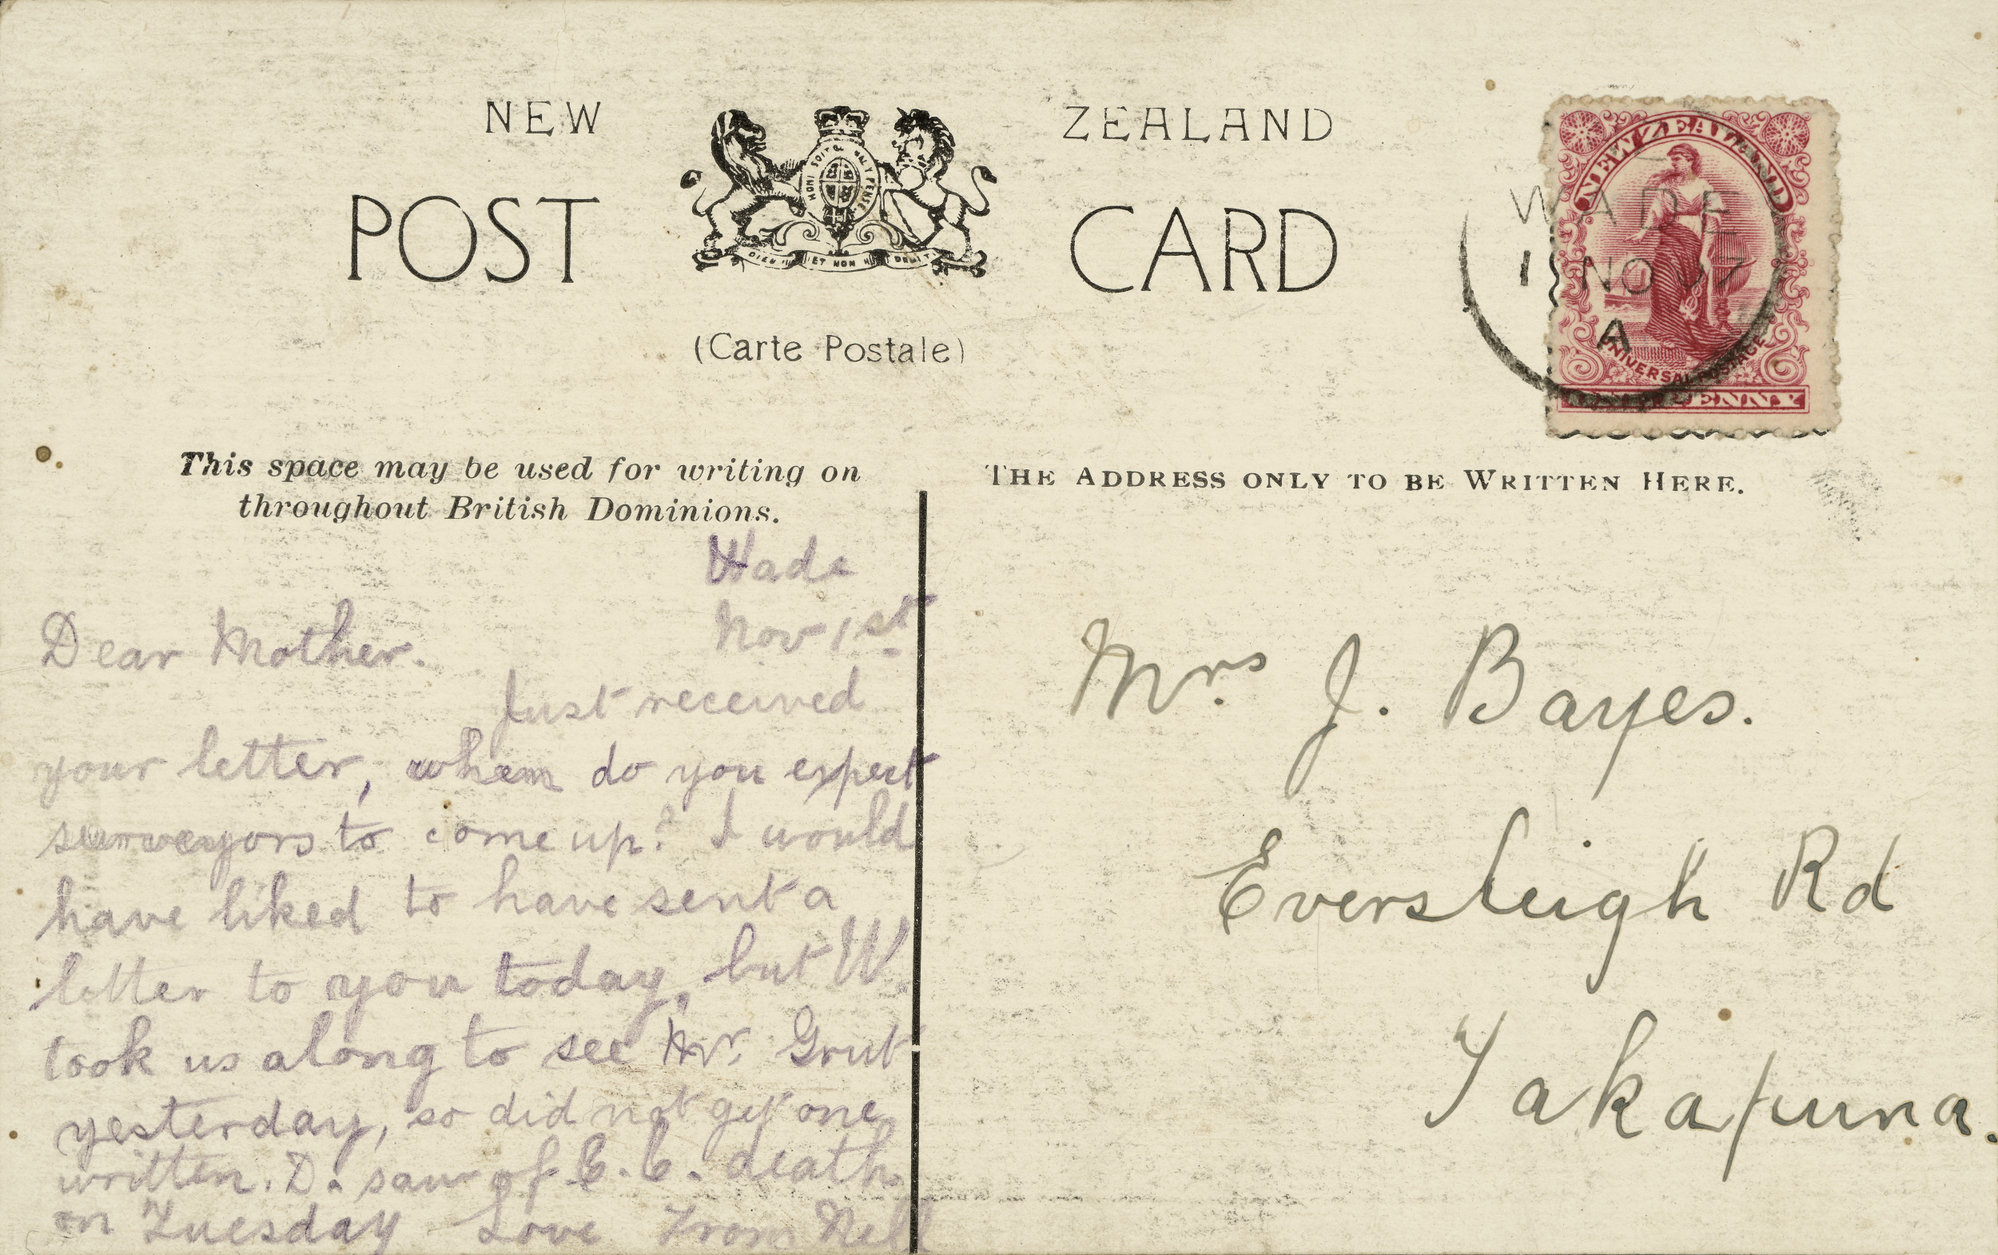 NEW ZEALAND
POST CARD
HONI SOIT QUI MAL Y PENSE
DIEU ET MON DROIT
(Carte Postale)
NEW ZEALAND
UNIVERSAL POSTAGE
ONE PENNY
WADE
1 NO 07
A
This space may be used for writing on
throughout British Dominions.
THE ADDRESS ONLY TO BE WRITTEN HERE.
Wade
Nov 1st
Dear Mother.
Just received
your letter, when do you expect
surveyors to come up? I would
have liked to have sent a
letter to you today, but W.
took us along to see Mr. Grut
yesterday, so did not get one
written. D. saw of E. C. death
on Tuesday Love From Nell
Mrs J. Bayes.
Eversleigh Rd
Takapuna.